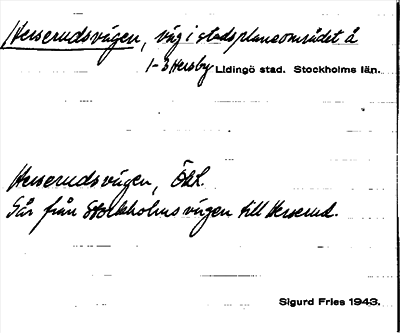 Herserudsvägen, väg i stadsplaneområdet å
1-3 Hersby Lidingö stad. Stockholms län.
Herserudsvägen, ÖhL.
Går från Stockholmsvägen till Herserud.
Sigurd Fries 1943.